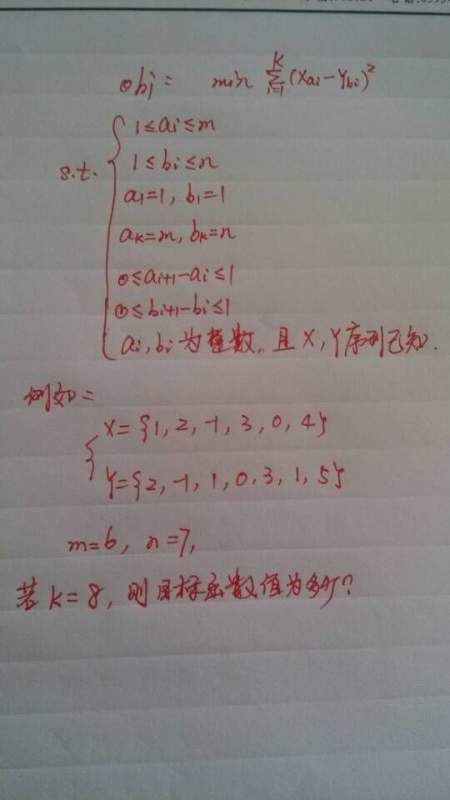 obj = min Σ_{i=1}^{K} (Xai - Ybi)²
s.t. { 1 ≤ ai ≤ m
1 ≤ bi ≤ n
a1=1, b1=1
aK=m, bK=n
0 ≤ ai+1-ai ≤ 1
0 ≤ bi+1-bi ≤ 1
ai, bi 为整数, 且 X, Y序列已知.
例如:
{ X = {1, 2, -1, 3, 0, 4}
Y = {2, -1, 1, 0, 3, 1, 5}
m=6, n=7,
若 K=8, 则目标函数值为多少?